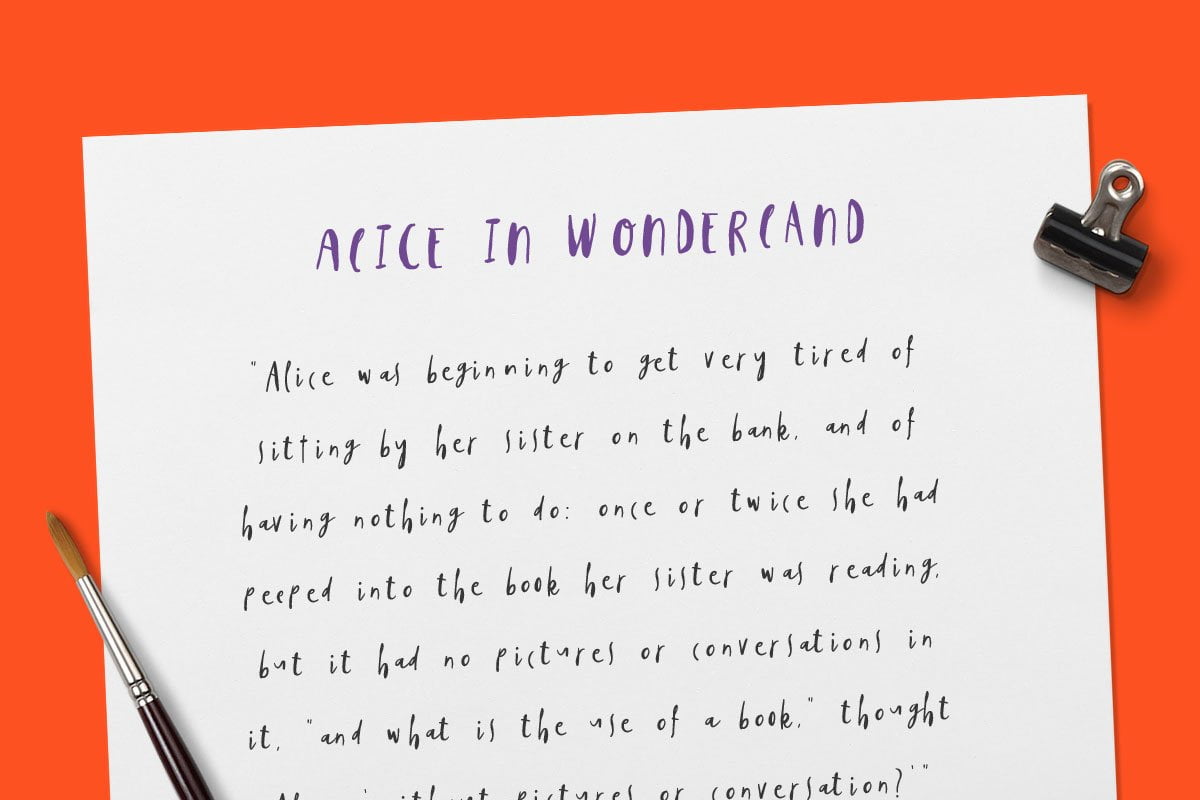 ALICE IN WONDERLAND
"Alice was beginning to get very tired of
sitting by her sister on the bank, and of
having nothing to do: once or twice she had
peeped into the book her sister was reading,
but it had no pictures or conversations in
it, "and what is the use of a book," thought
pictures or conversation?'"